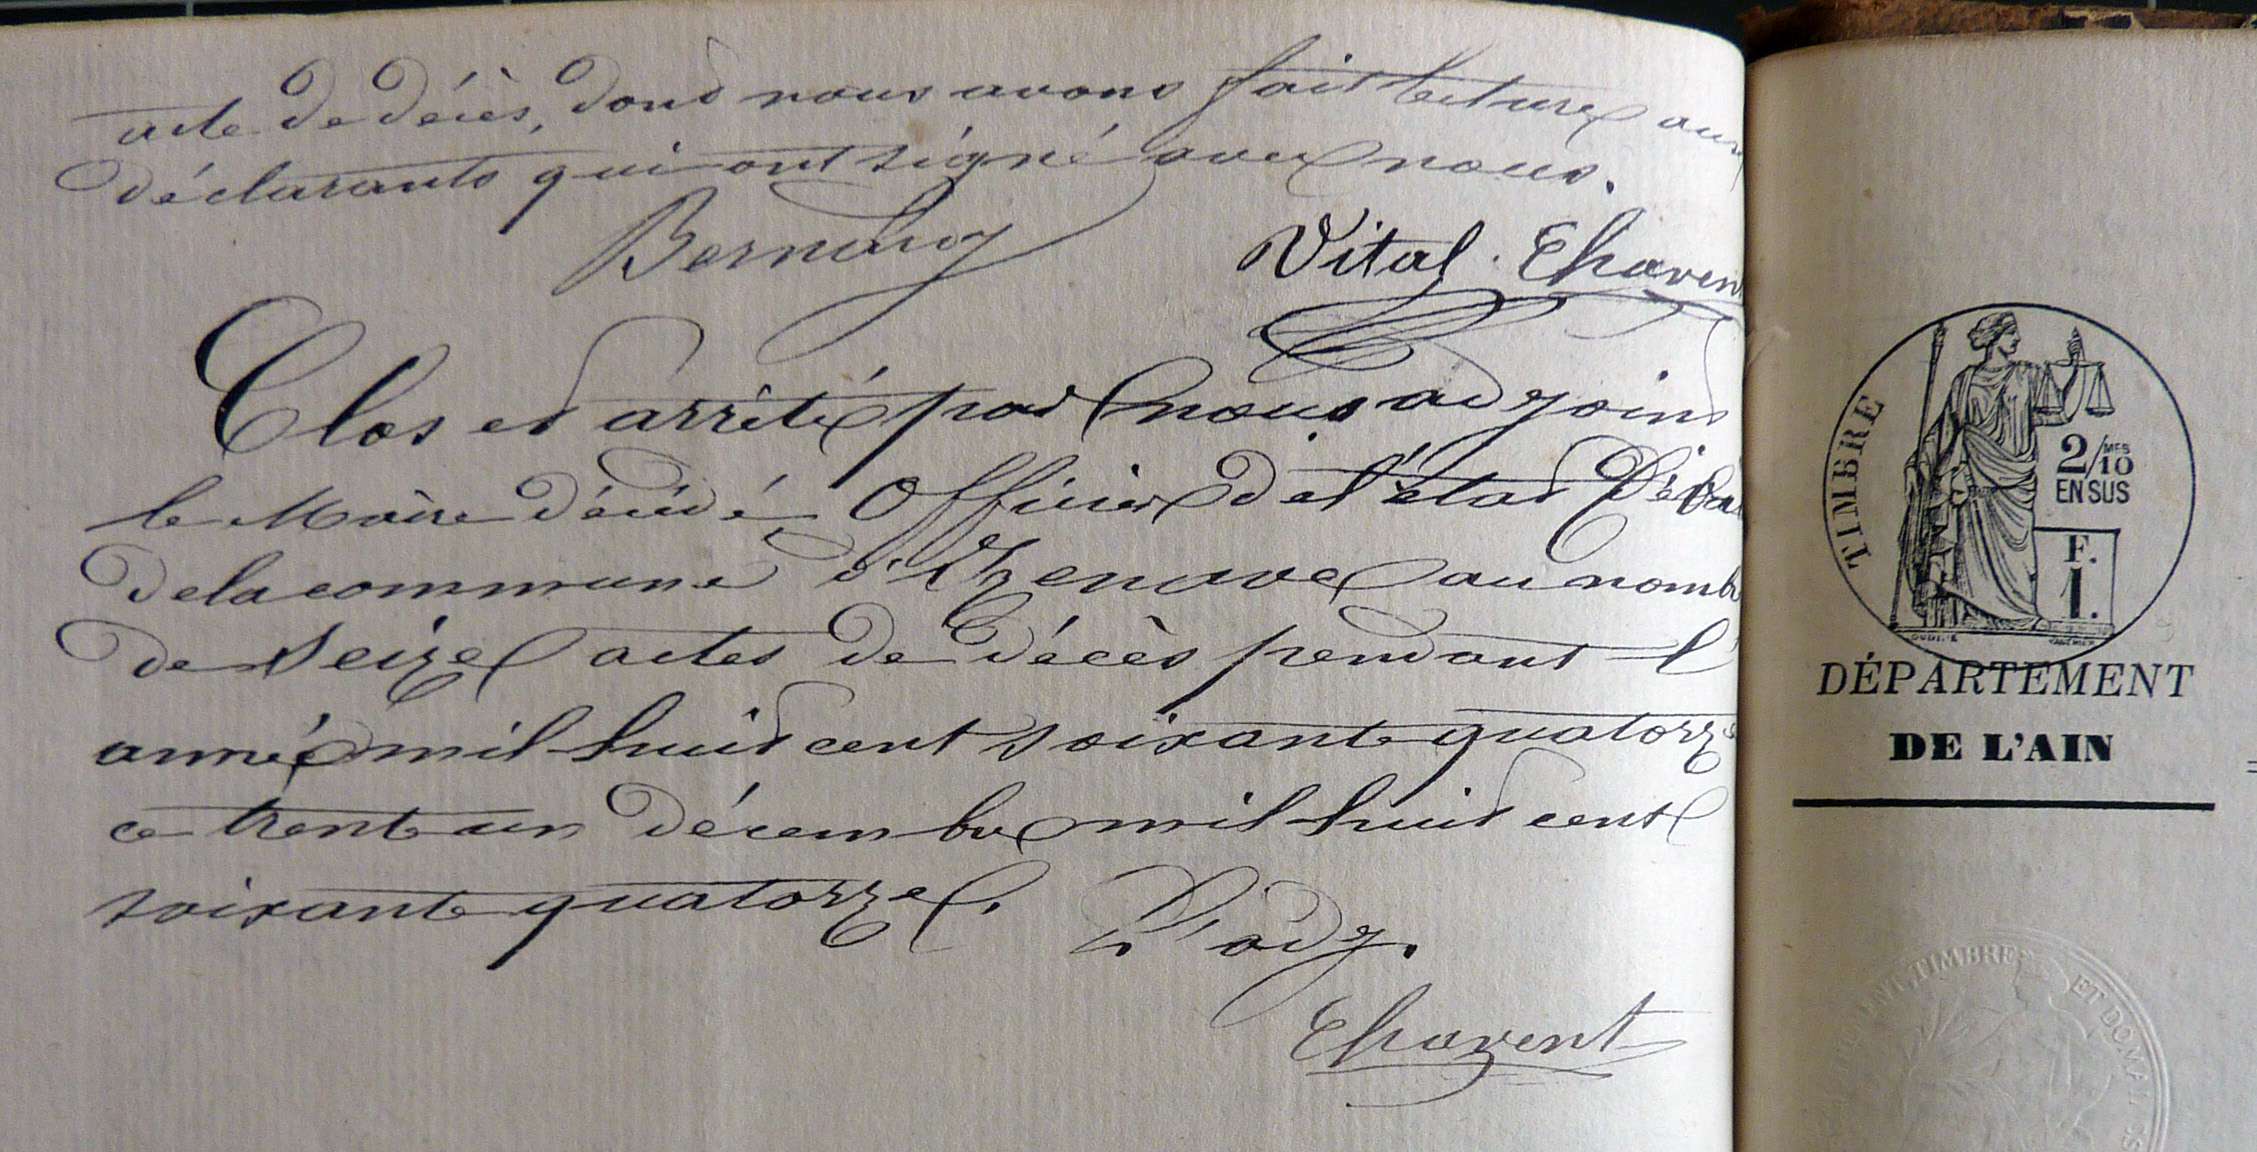 acte de décès, dont nous avons fait lecture aux
déclarants qui ont signé avec nous.
Vital. Chavent
Clos et arrêté par nous adjoint
le Maire décédé, Officier de l'état Civil
de la commune d'Izenave au nombre
de seize actes de décès pendant l'
année mil huit cent soixante quatorze
ce trente un décembre mil huit cent
soixante quatorze.
L'adj.
Chavent
TIMBRE
2/10 MES
EN SUS
F.
1.
OUDINÉ
DÉPARTEMENT
DE L'AIN
TIMBRE ET DOMAI